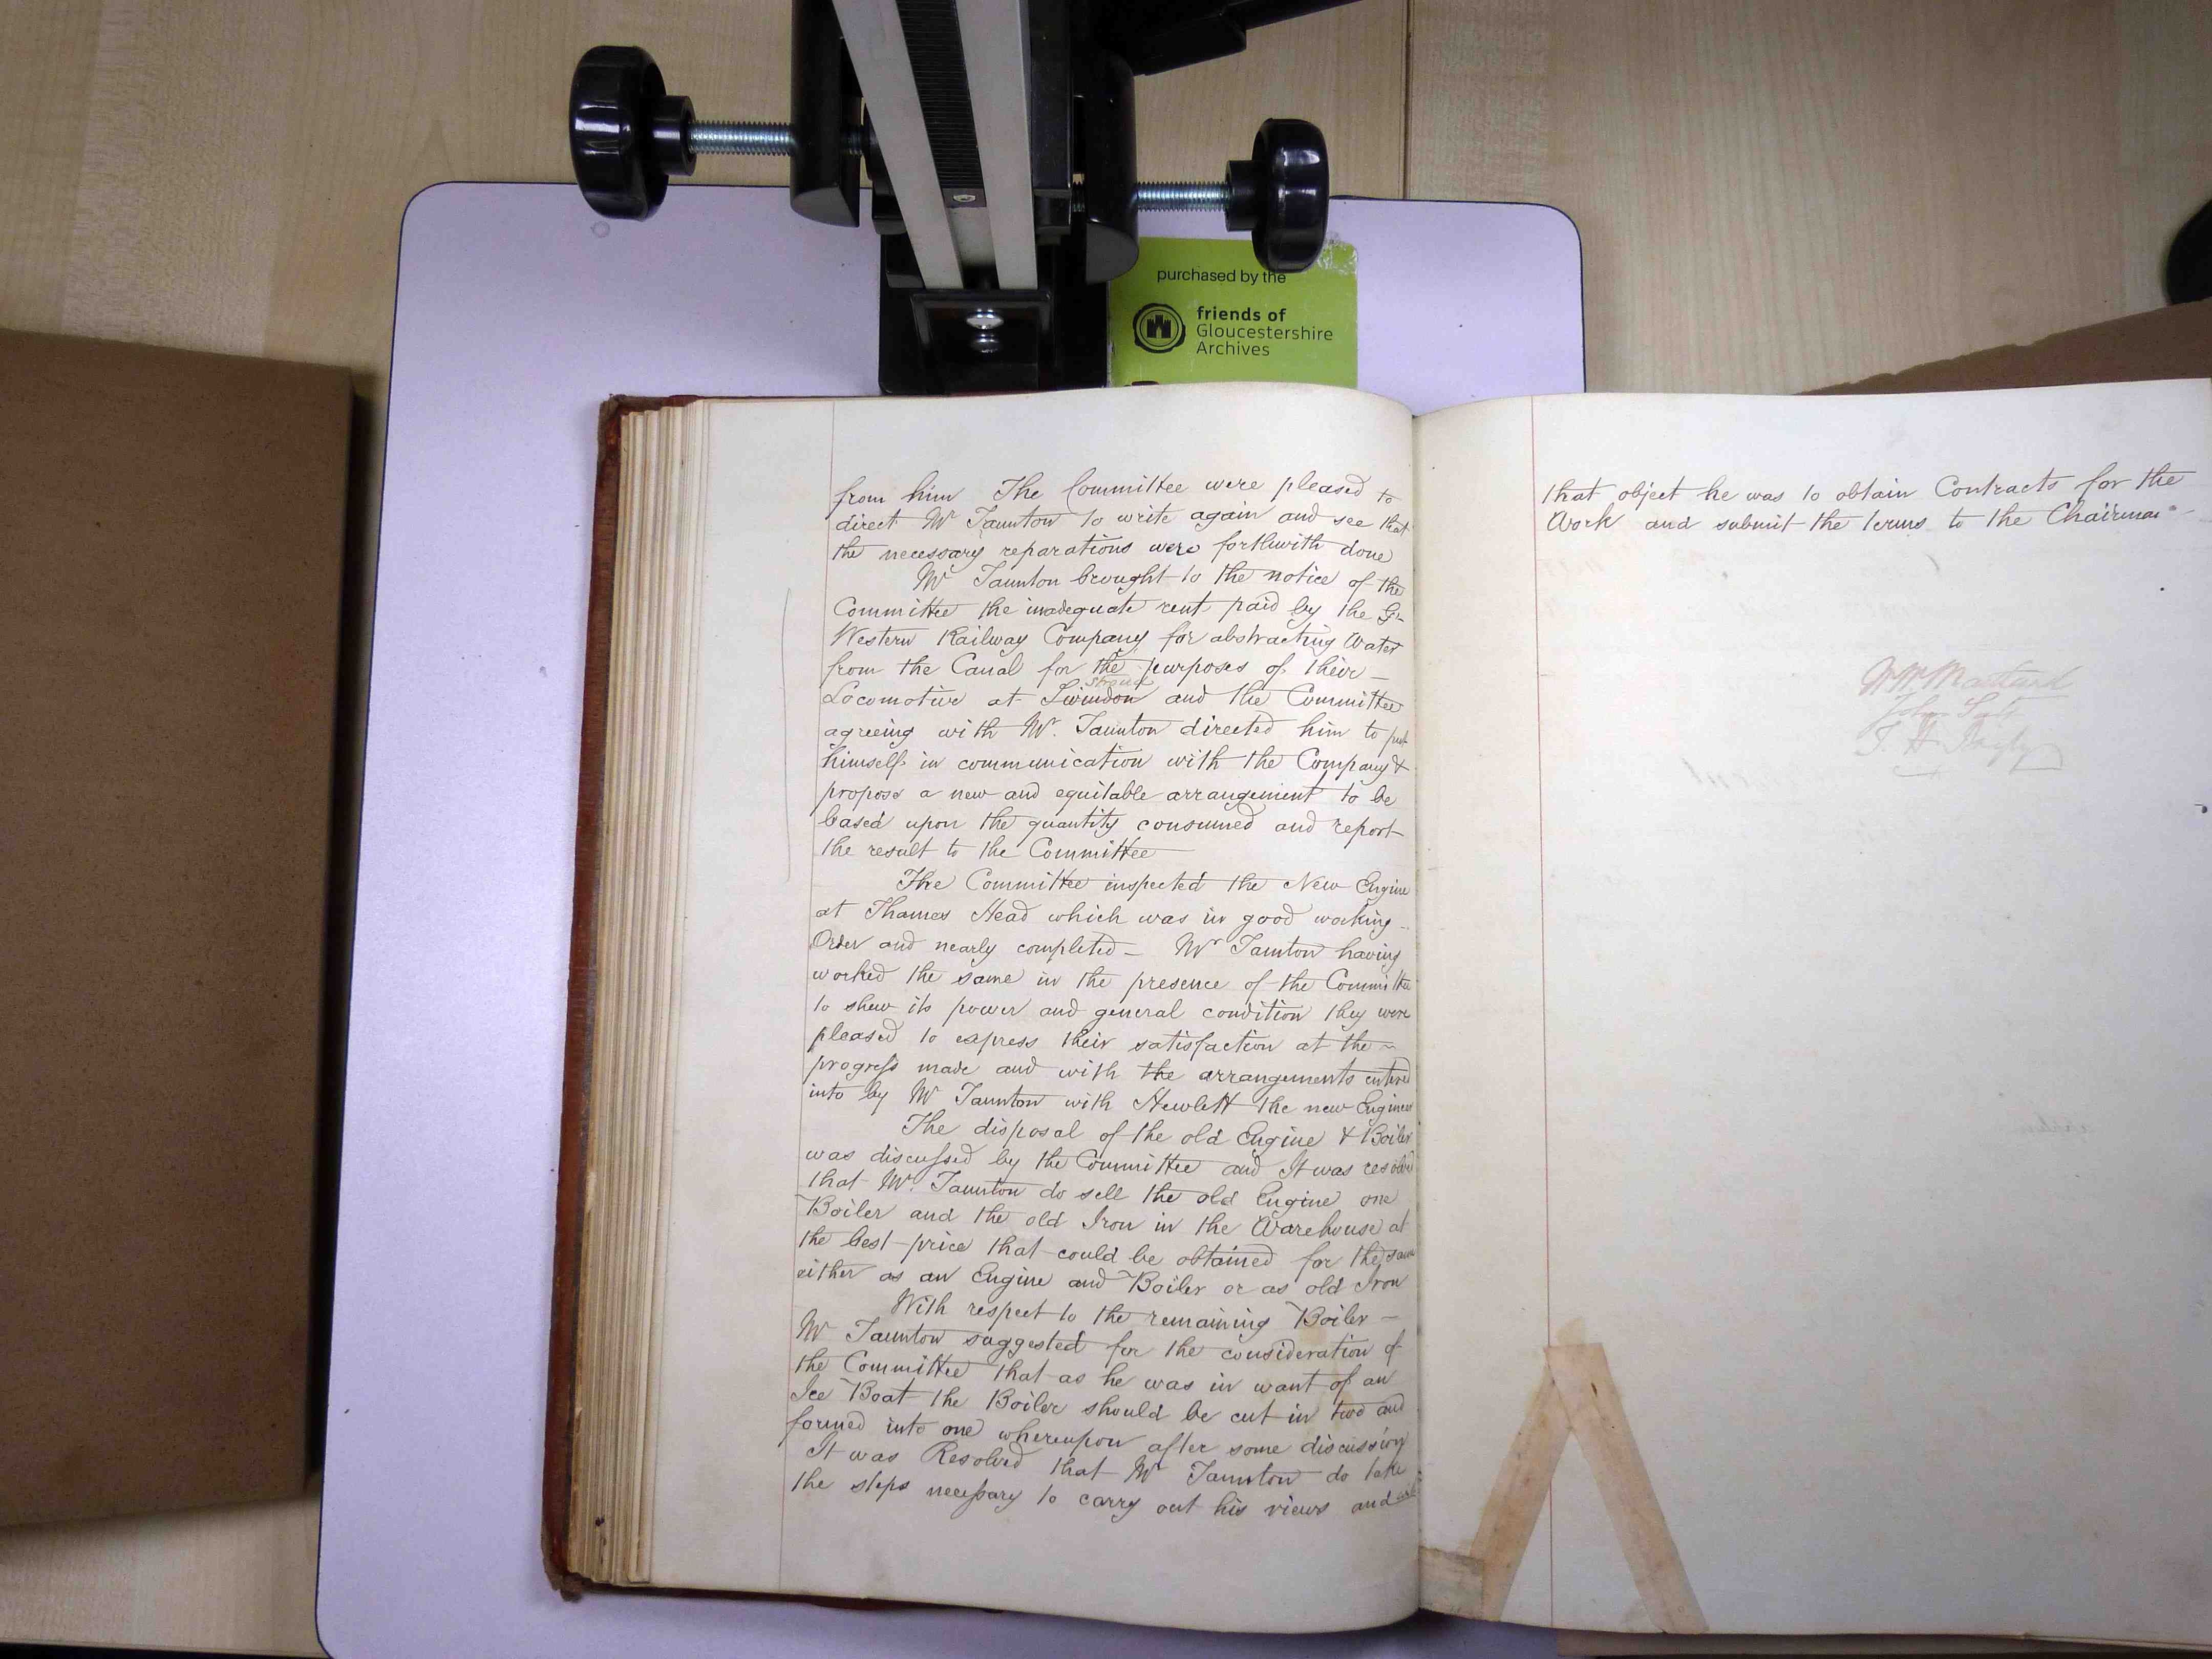 purchased by the
friends of
Gloucestershire
Archives
from him The Committee were pleased to
direct Mr Taunton to write again and see that
the necessary reparations were forthwith done
Mr Taunton brought to the notice of the
Committee the inadequate rent paid by the Gt
Western Railway Company for abstracting Water
from the Canal for the purposes of their —
Stroud
Locomotive at Swindon and the Committee
agreeing with Mr. Taunton directed him to put
himself in communication with the Company &
propose a new and equitable arrangement to be
based upon the quantity consumed and report
the result to the Committee —
The Committee inspected the New Engine
at Thames Head which was in good working
Order and nearly completed — Mr Taunton having
worked the same in the presence of the Committee
to shew its power and general condition they were
pleased to express their satisfaction at the ~
progress made and with the arrangements entered
into by Mr Taunton with Hewlett the new Engineer
The disposal of the old Engine & Boiler
was discussed by the Committee and It was resolved
that Mr. Taunton do sell the old Engine one
Boiler and the old Iron in the Warehouse at
the best price that could be obtained for the same
either as an Engine and Boiler or as old Iron
With respect to the remaining Boiler —
Mr Taunton suggested for the consideration of
the Committee that as he was in want of an
Ice Boat the Boiler should be cut in two and
formed into one whereupon after some discussion
It was Resolved that Mr Taunton do take
the steps necessary to carry out his views and with
that object he was to obtain Contracts for the
Work and submit the terms to the Chairman —
John